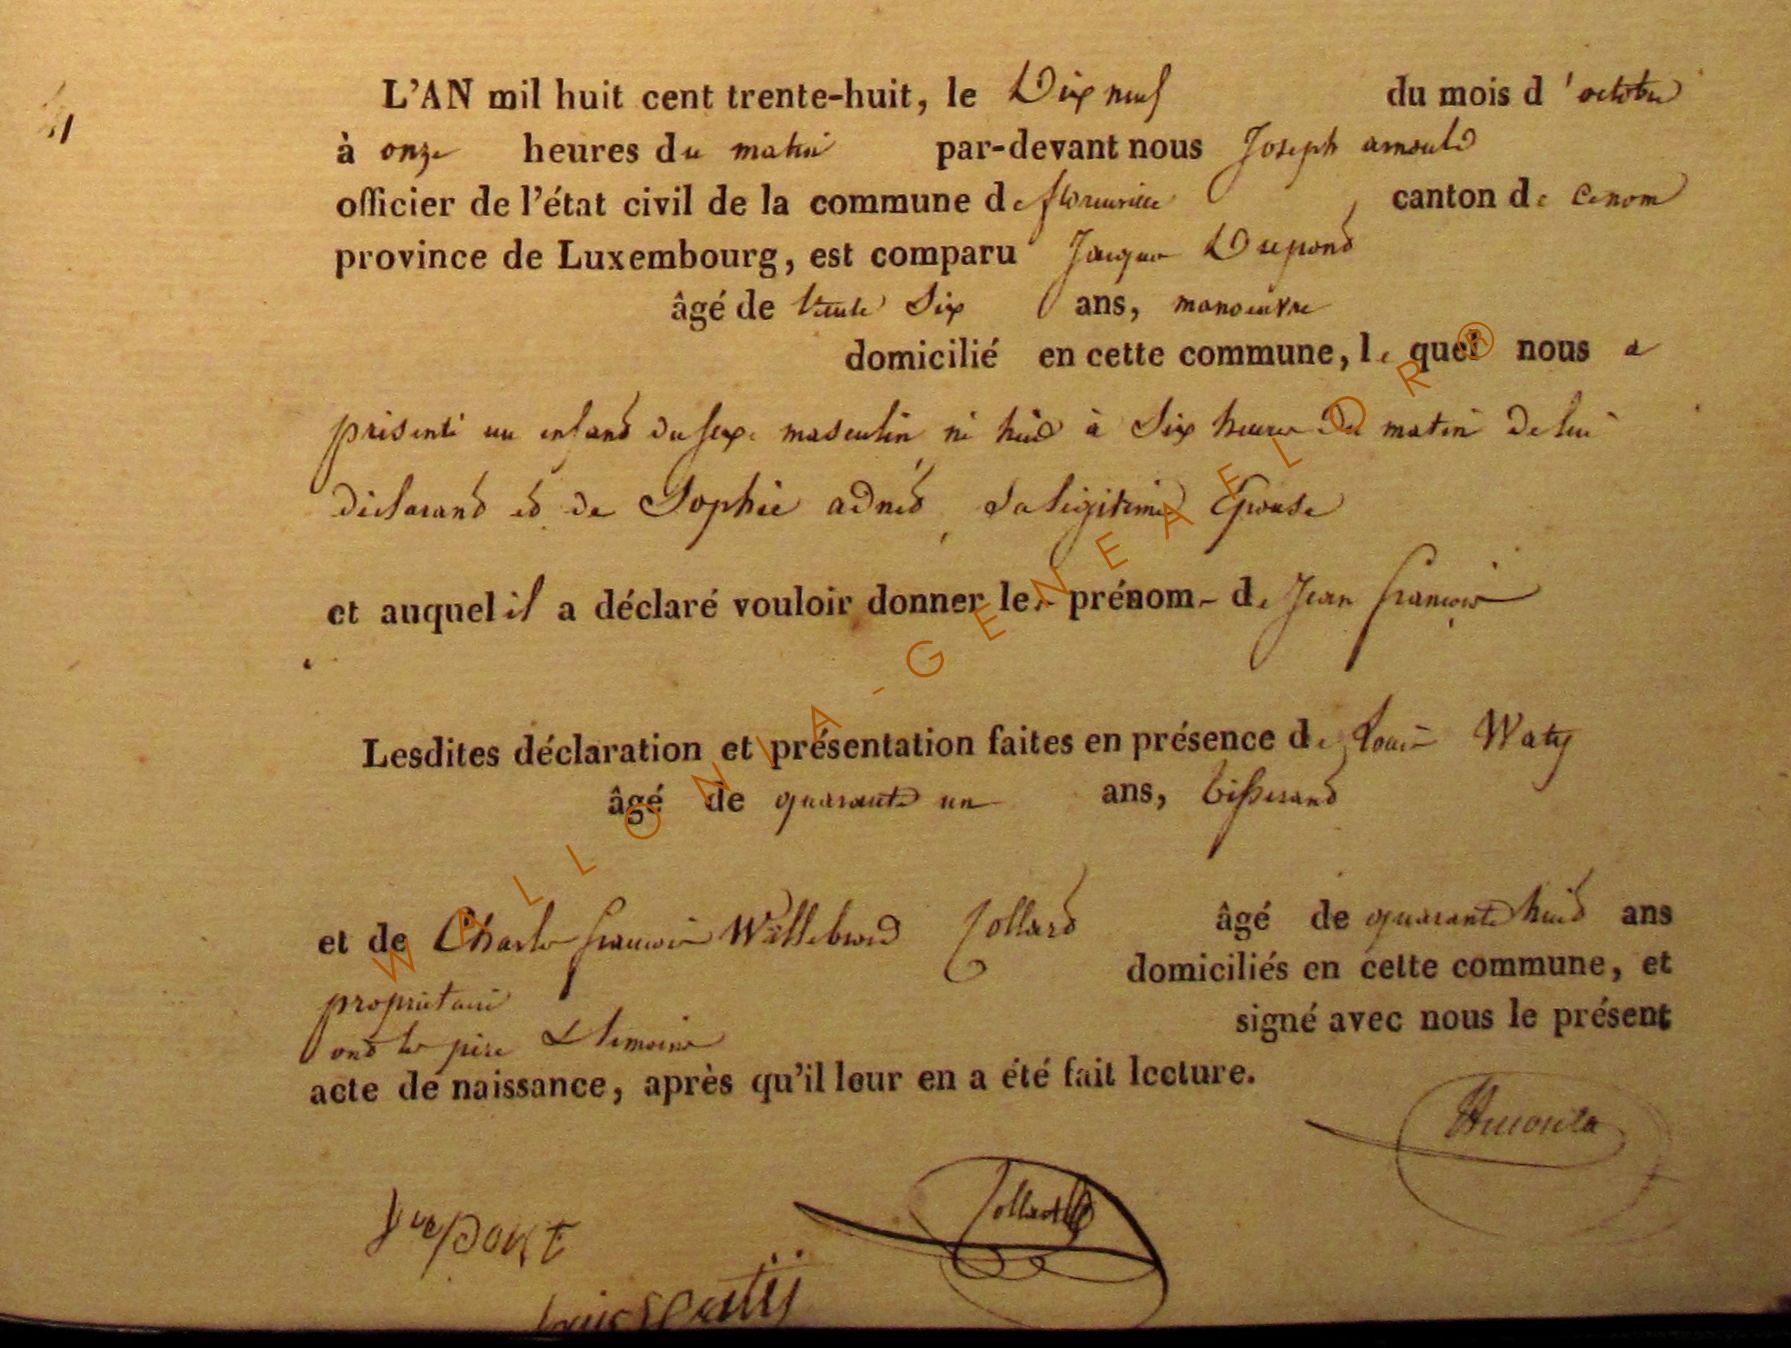 L'AN mil huit cent trente-huit, le Dix neuf du mois d'octobre
à onze heures du matin par-devant nous Joseph arnould
officier de l'état civil de la commune de florenville canton de
province de Luxembourg, est comparu Jacques Dupond
âgé de trente Six ans, manoeuvre
domicilié en cette commune, le quel nous a
présenté un enfand du sexe masculin né huid à Six heures du matin de lui
déclarand ed de Sophie adned Sa légitime Epouse
et auquel il a déclaré vouloir donner les prénoms de Jean françois
Lesdites déclaration et présentation faites en présence de Louis Waty
âgé de quarante un ans, tisserand
et de Charles françois Willebrord Collard âgé de quarante huid ans
propriétaire domiciliés en cette commune, et
ond les père & témoins signé avec nous le présent
acte de naissance, après qu'il leur en a été fait lecture.
Arnould
Collard
Louis Watij
WALLONIA-GENEAELDR®